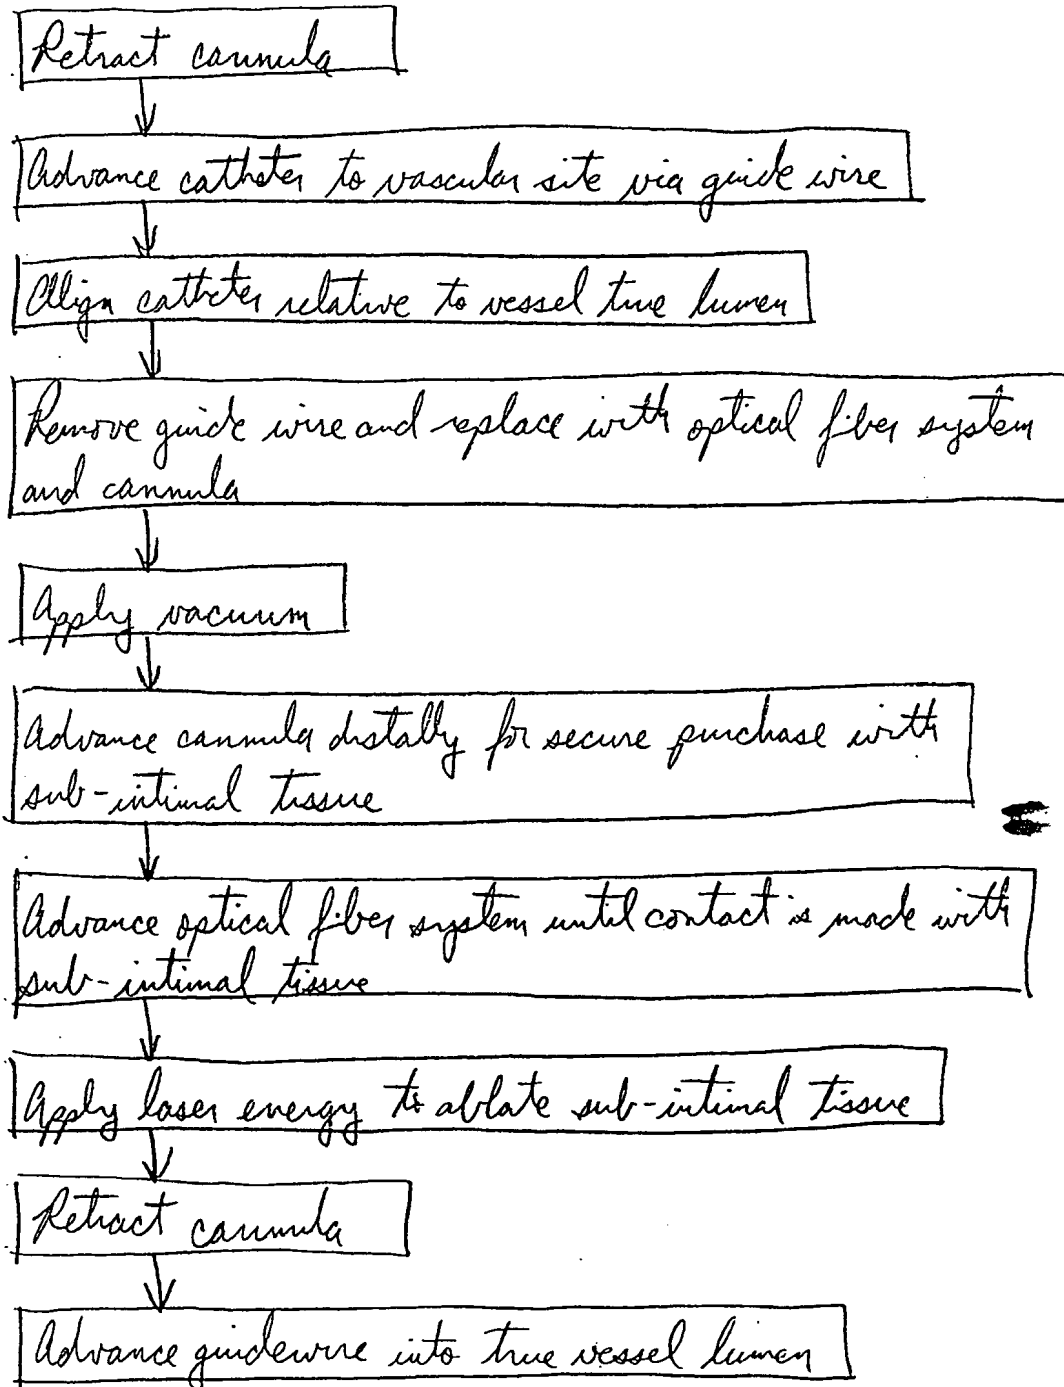 Retract cannula
Advance catheter to vascular site via guide wire
Align catheter relative to vessel true lumen
Remove guide wire and replace with optical fiber system
and cannula
Apply vacuum
Advance cannula distally for secure purchase with
sub-intimal tissue
Advance optical fiber system until contact is made with
sub-intimal tissue
Apply laser energy to ablate sub-intimal tissue
Retract cannula
Advance guidewire into true vessel lumen